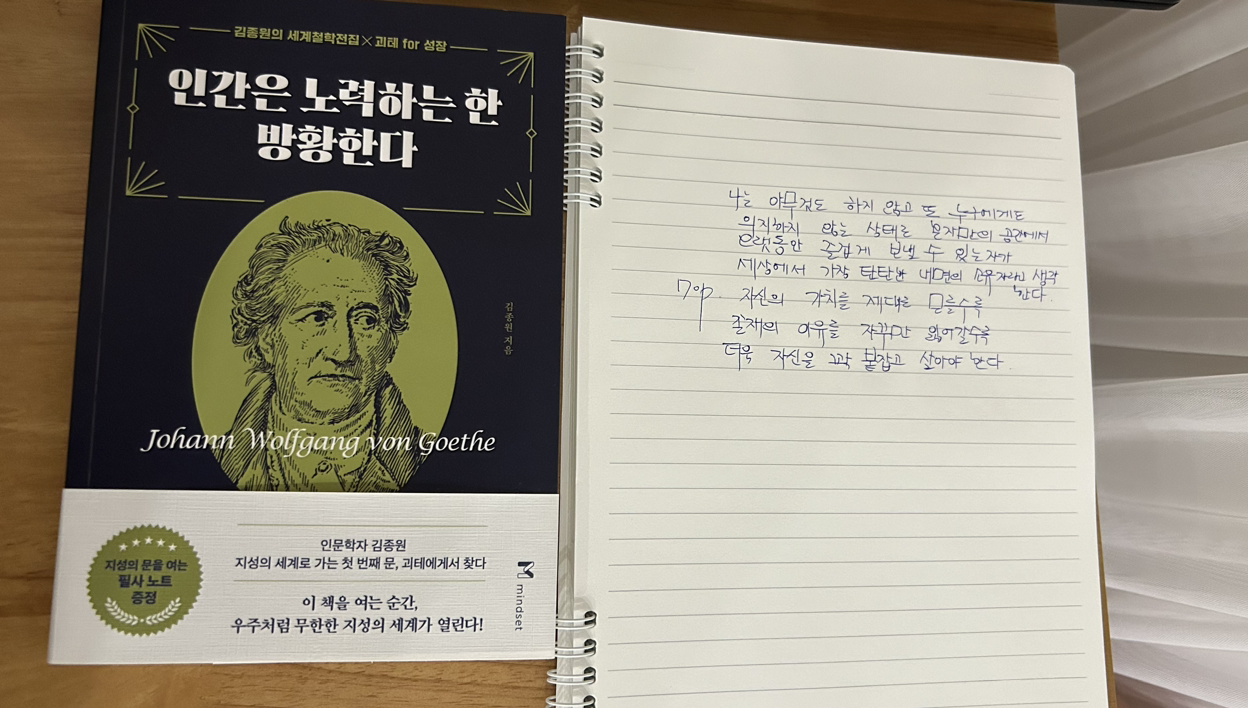 김종원의 세계철학전집 × 괴테 for 성장
인간은 노력하는 한
방황한다
김종원 지음
Johann Wolfgang von Goethe
지성의 문을 여는
필사 노트
증정
인문학자 김종원
지성의 세계로 가는 첫 번째 문, 괴테에게서 찾다
이 책을 여는 순간,
우주처럼 무한한 지성의 세계가 열린다!
mindset
나는 아무것도 하지 않고 또 누구에게도
의지하지 않는 상태로 혼자만의 공간에서
오랫동안 즐겁게 보낼 수 있는자가
세상에서 가장 탄탄한 내면의 소유자라고 생각
한다.
70p. 자신의 가치를 제대로 모를수록
존재의 이유를 자꾸만 잃어갈수록
더욱 자신을 꽉 붙잡고 살아야 한다.